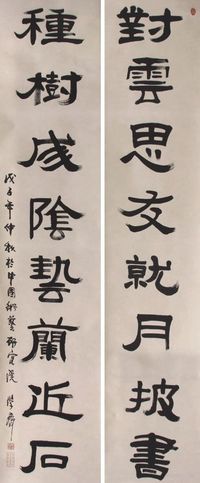 對雲思友就月披書
種樹成陰藝蘭近石
戊子年仲秋於中國